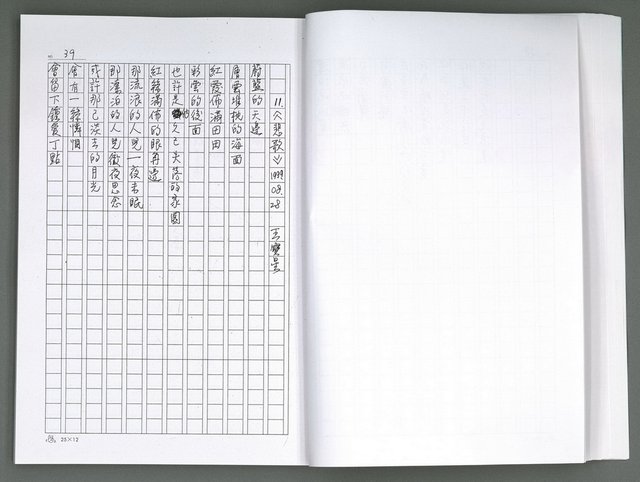 39
11.《悲歌》1999.08.28 王寶星
蔚藍的天邊
層雲堆枕的海面
紅霞佈滿田田
彩雲的後面
也許是久已失落的家園
紅絲滿佈的眼再遠
那流浪的人兒一夜未眠
那漂泊的人兒徹夜思念
或許那已淡去的月光
會有一絲憐惜
會留下鍾愛丁點
25×12